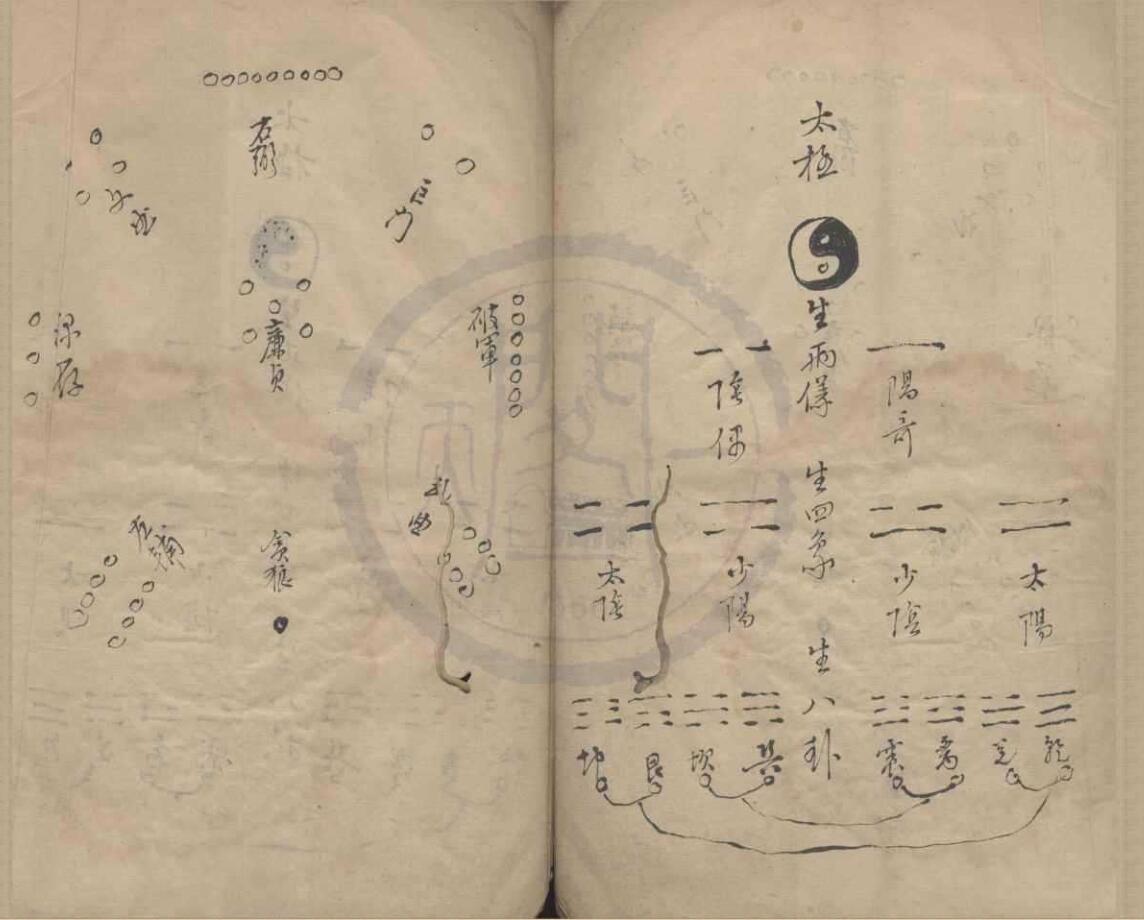 太極
生兩儀
生四象
生
八卦
陽奇
陰偶
太陽
少陰
少陽
太陰
乾
兌
离
震
巽
坎
艮
坤
巨門
右弼
破軍
廉貞
祿存
武曲
文曲
貪狼
左輔